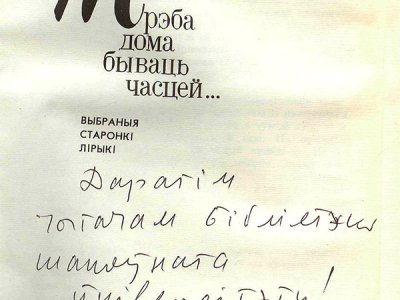 Трэба
дома
бываць
часцей...
ВЫБРАНЫЯ
СТАРОНКІ
ЛІРЫКІ
Дарагім
чытачам бібліятэкі
шаноўнага
ўніверсітэту!